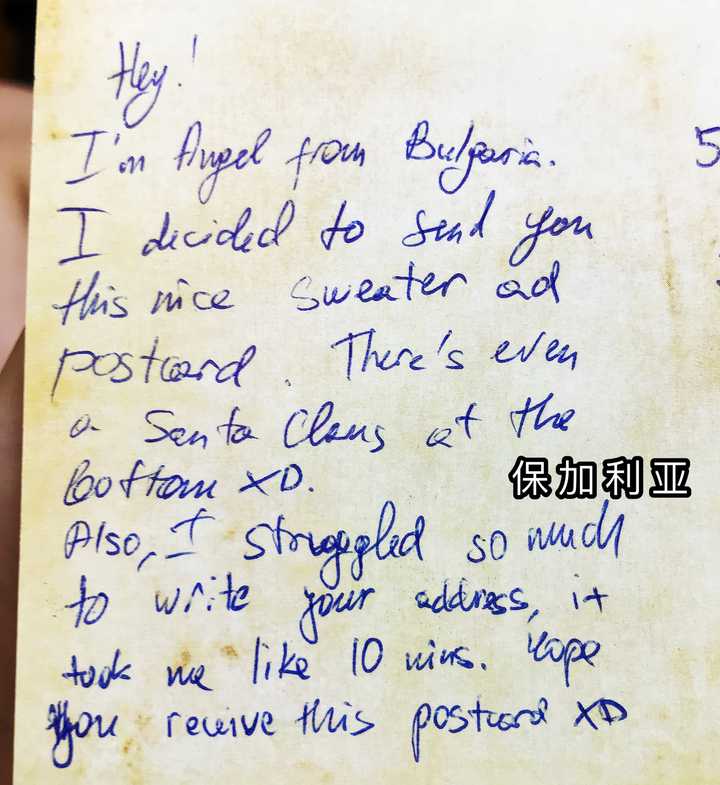 Hey!
I'm Angel from Bulgaria.
5
I decided to send you
this nice sweater ad
postcard. There's even
a Santa Claus at the
bottom XD.
保加利亚
Also, I struggled so much
to write your address, it
took me like 10 mins. Hope
you receive this postcard XD